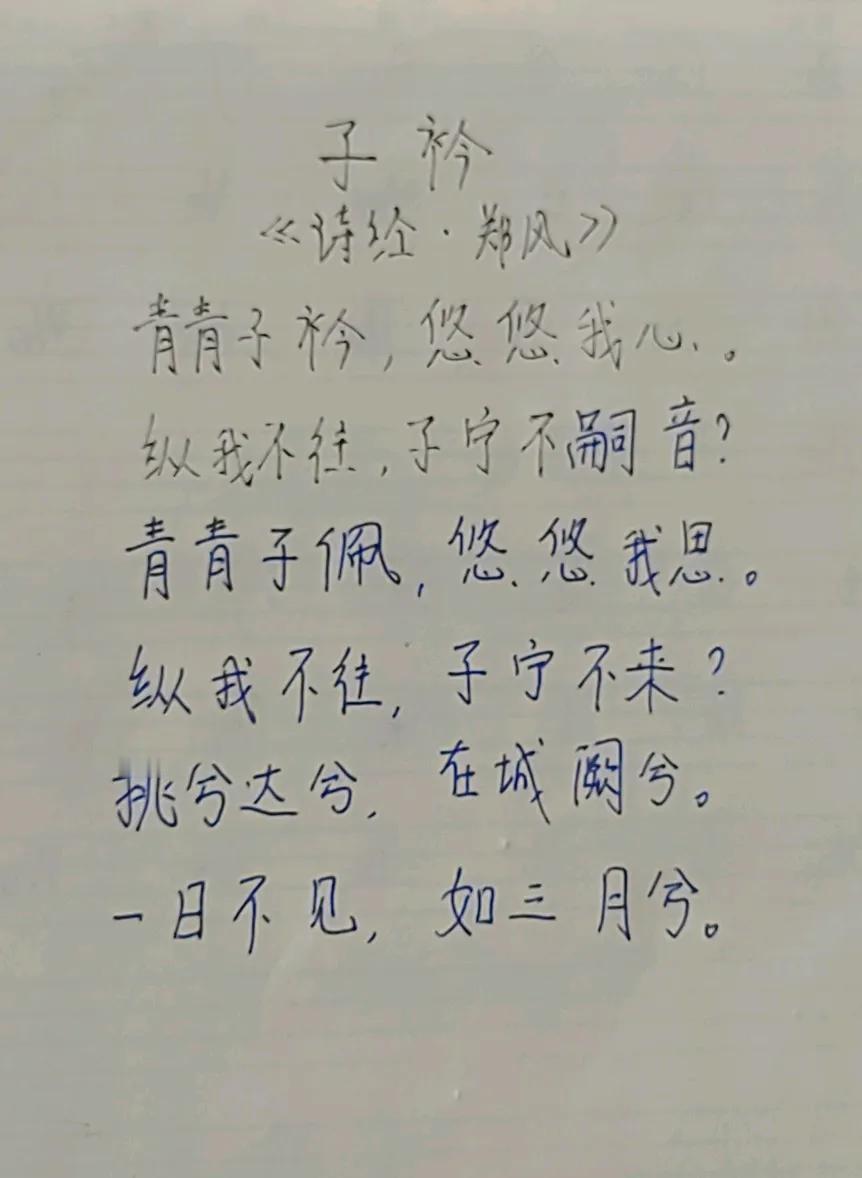 子衿
《诗经·郑风》
青青子衿，悠悠我心。
纵我不往，子宁不嗣音？
青青子佩，悠悠我思。
纵我不往，子宁不来？
挑兮达兮，在城阙兮。
一日不见，如三月兮。